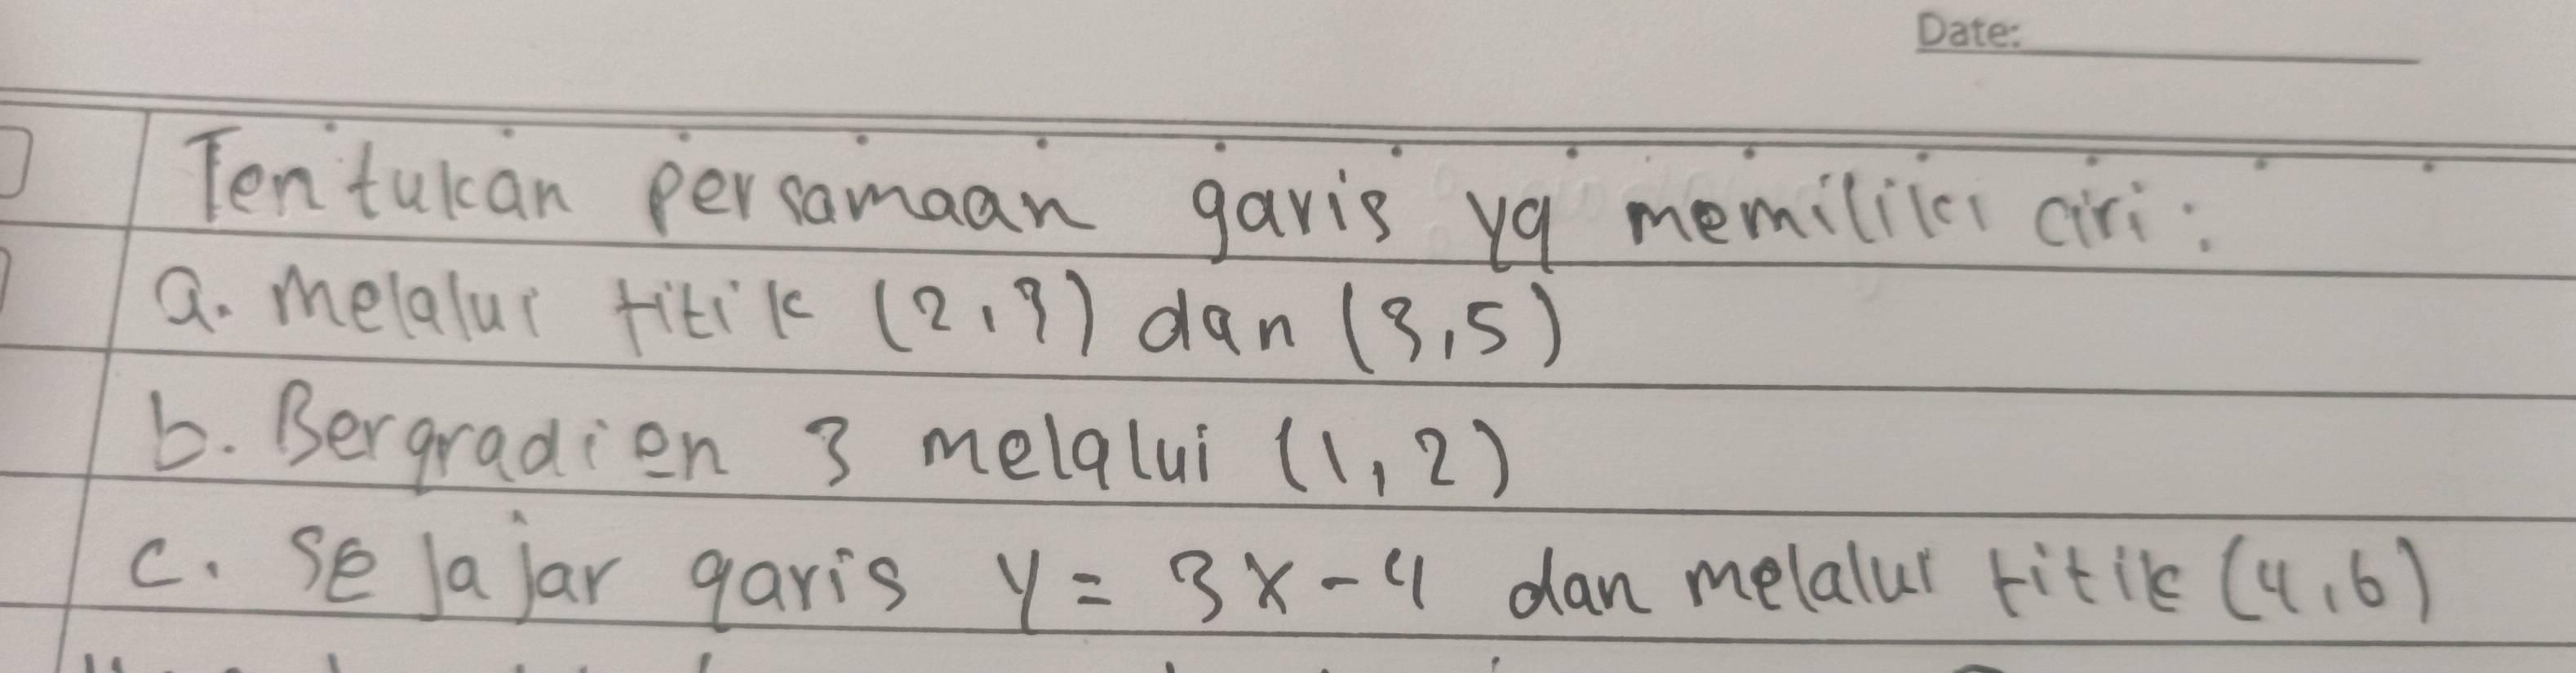 Date:
Tentukan persamaan garis yg memiliki ciri :
a. Melalui titik (2,3) dan (3,5)
b. Bergradien 3 melalui (1,2)
c. Sejajar garis y = 3x-4 dan melalui titik (4,6)